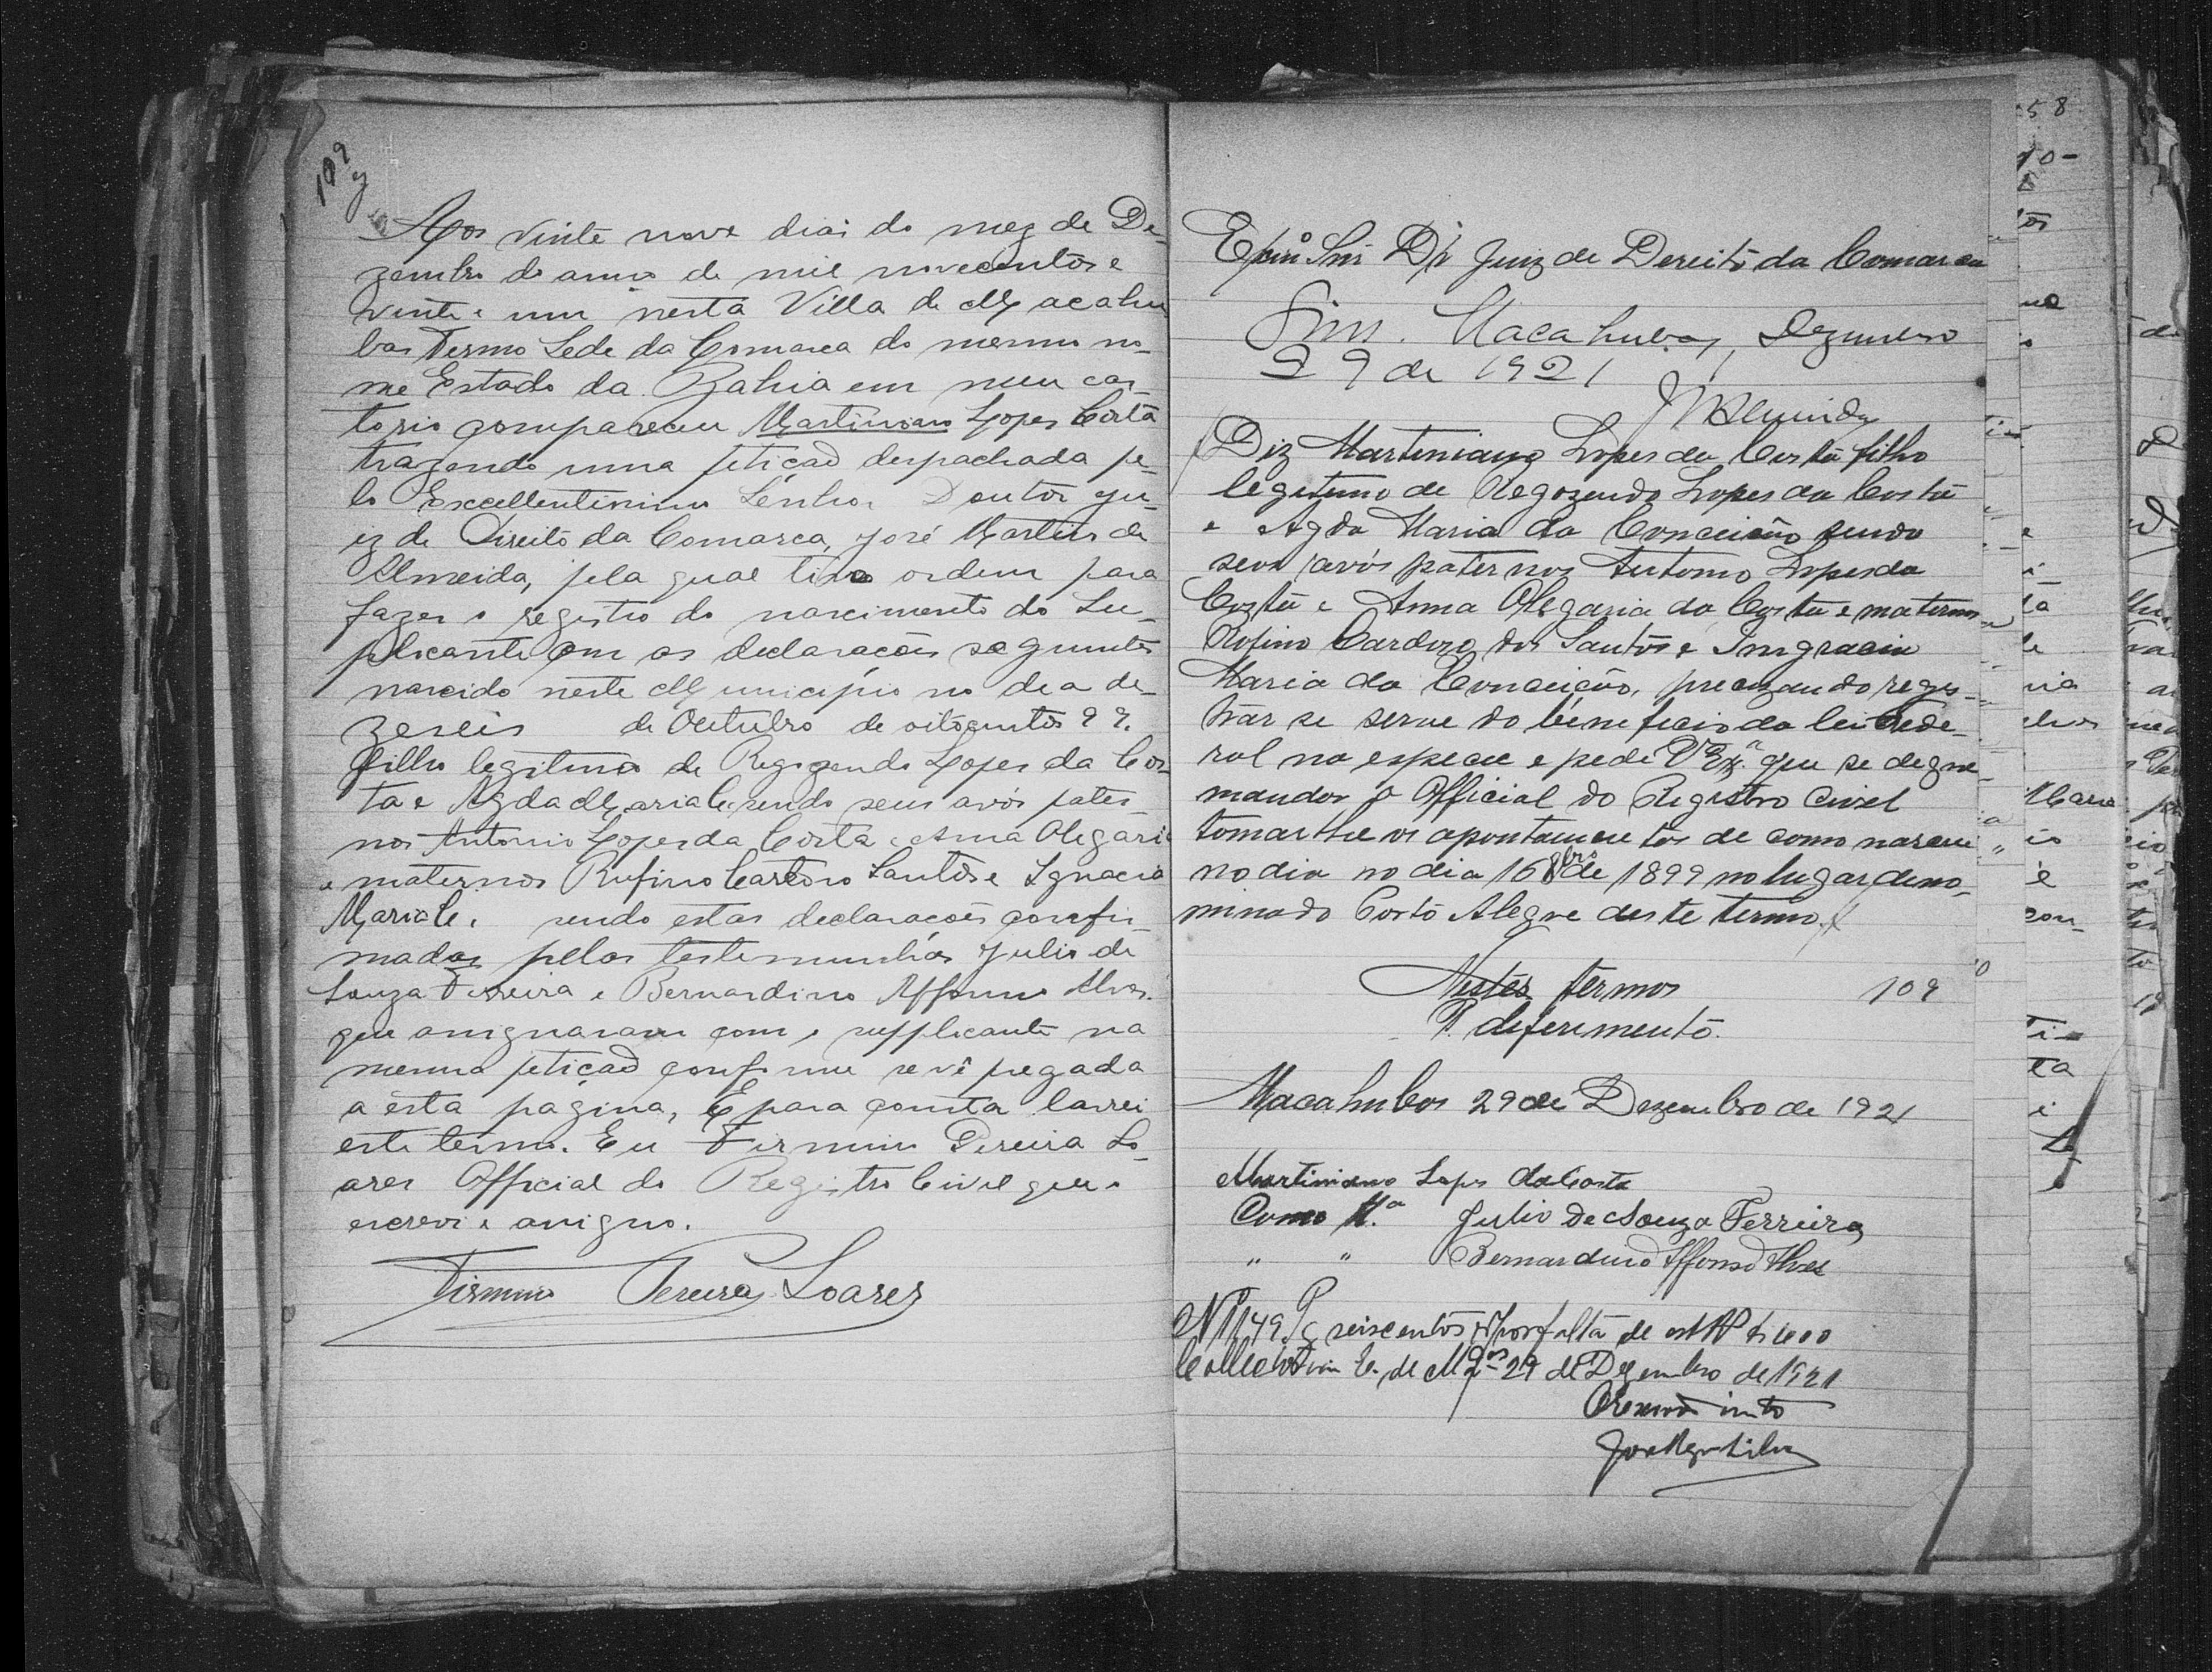 109
Aos vinte nove dias do mez de De-
zembro do anno de mil novecentos e
vinte e um nesta Villa de Macahu
bas Termo Sede da Comarca do mesmo no-
me Estado da Bahia em meu car-
torio compareceu Martiniano Lopes Costa
trazendo uma petição despachada pe-
lo Excellentissimo Senhor Doutor Ju-
iz de Direito da Comarca, José Martins de
Almeida, pela qual tive ordem para
fazer o registro do nascimento do Su-
plicante com as declarações seguintes
nascido neste Municipio no dia de-
zeseis de Outubro de oitocentos 99.
filho legitimo de Regozendo Lopes da Cos-
ta e Agda Maria C. sendo seus avós pater
nos Antonio Lopes da Costa e Anna Olegaria
e maternos Rufino Cardoso Santos e Ignacia
Maria C. sendo estas declarações confir-
madas pelas testemunhas Julio de
Souza Ferreira e Bernardino Affonso Alves.
que assignaram com o supplicante na
mesma petição conforme se vê pregada
a esta pagina, E para consta lavrei
este termo. Eu Firmino Pereira So-
ares Official do Registro Civil que o
escrevi e assigno.
Firmino Pereira Soares
Exmo Snr Dr Juiz de Dereito da Comarca
Sim. Macahubas, Dezembro
29 de 1921
JMAlmeida
Diz Martiniano Lopes da Costa filho
legitimo de Regozendo Lopes da Costa
e Agda Maria da Conceição sendo
seus avós paternos Antonio Lopes da
Costa e Anna Olegaria da Costa e maternos
Rofino Cardozo dos Santos e Ingracia
Maria da Conceição, precizando regis-
trar se serve do beneficio da lei Fede-
ral na especie e pede Va Exa. que se degne
mandar o Official do Registro Civel
tomar lhe os apontamentos de como nasceu
no dia no dia 16 8bro de 1899 no lugar deno-
minado Porto Alegre deste termo.
Nestes termos 109
P. deferimento.
Macahubas 29 de Dezembro de 1921
Martiniano Lopes da Costa
Como ta. Julio de Souza Ferreira
" " Bernardino Affonso Alves
N 1149. Pg seiscentos rs por falta de est 600
Collectoria E. de Mbas 29 de Dezembro de 1921